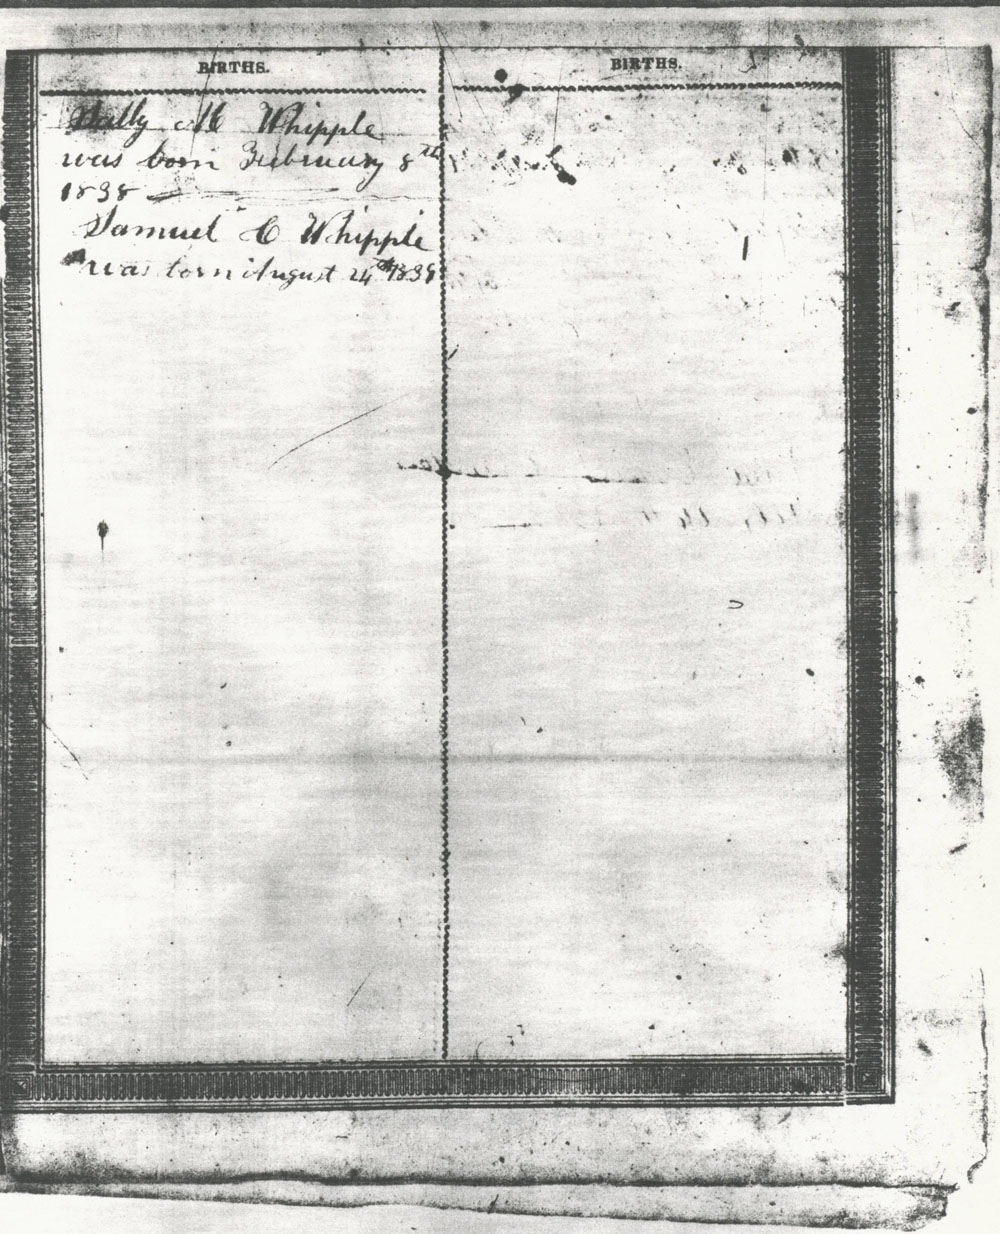 BIRTHS.
Sally M Whipple
was born February 8th
1838
Samuel C Whipple
was born August 24th 1839
BIRTHS.